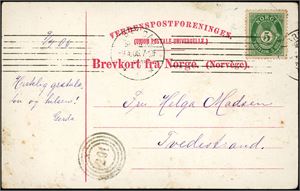 VERDENSPOSTFORENINGEN.
(UNION POSTALE UNIVERSELLE.)
Brevkort fra Norge. (Norvège.)
NORGE
5
Hjertelig gratula-
tion og hilsen!
Gerda
Frk Helga Madsen
Tvedestrand.
201